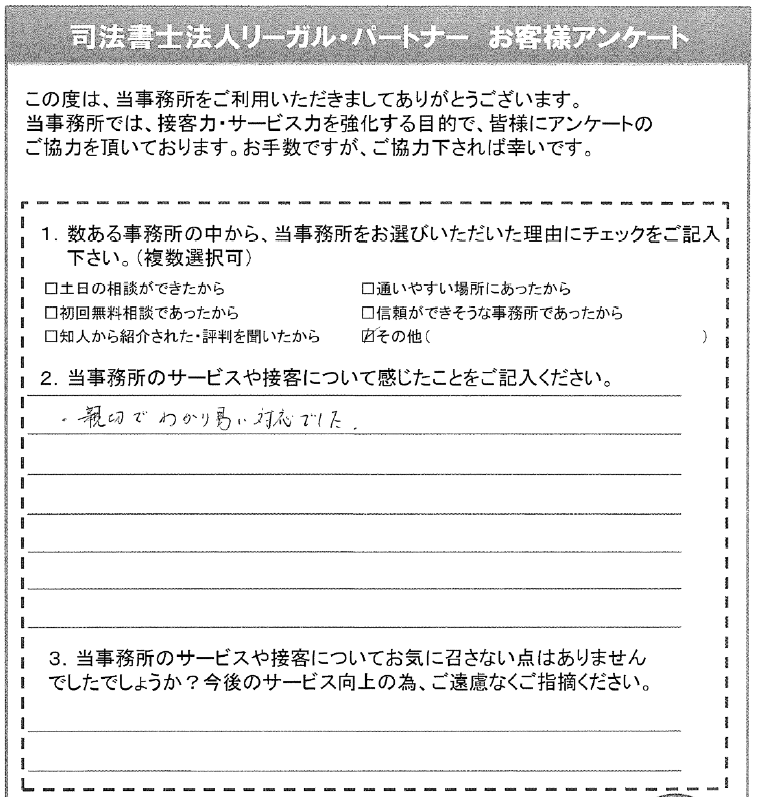 司法書士法人リーガル・パートナー お客様アンケート
この度は、当事務所をご利用いただきましてありがとうございます。
当事務所では、接客力・サービス力を強化する目的で、皆様にアンケートの
ご協力を頂いております。お手数ですが、ご協力下されば幸いです。
1. 数ある事務所の中から、当事務所をお選びいただいた理由にチェックをご記入
下さい。(複数選択可)
□土日の相談ができたから □通いやすい場所にあったから
□初回無料相談であったから □信頼ができそうな事務所であったから
□知人から紹介された・評判を聞いたから ☑その他( )
2. 当事務所のサービスや接客について感じたことをご記入ください。
・親切でわかり易い対応でした.
3. 当事務所のサービスや接客についてお気に召さない点はありません
でしたでしょうか?今後のサービス向上の為、ご遠慮なくご指摘ください。